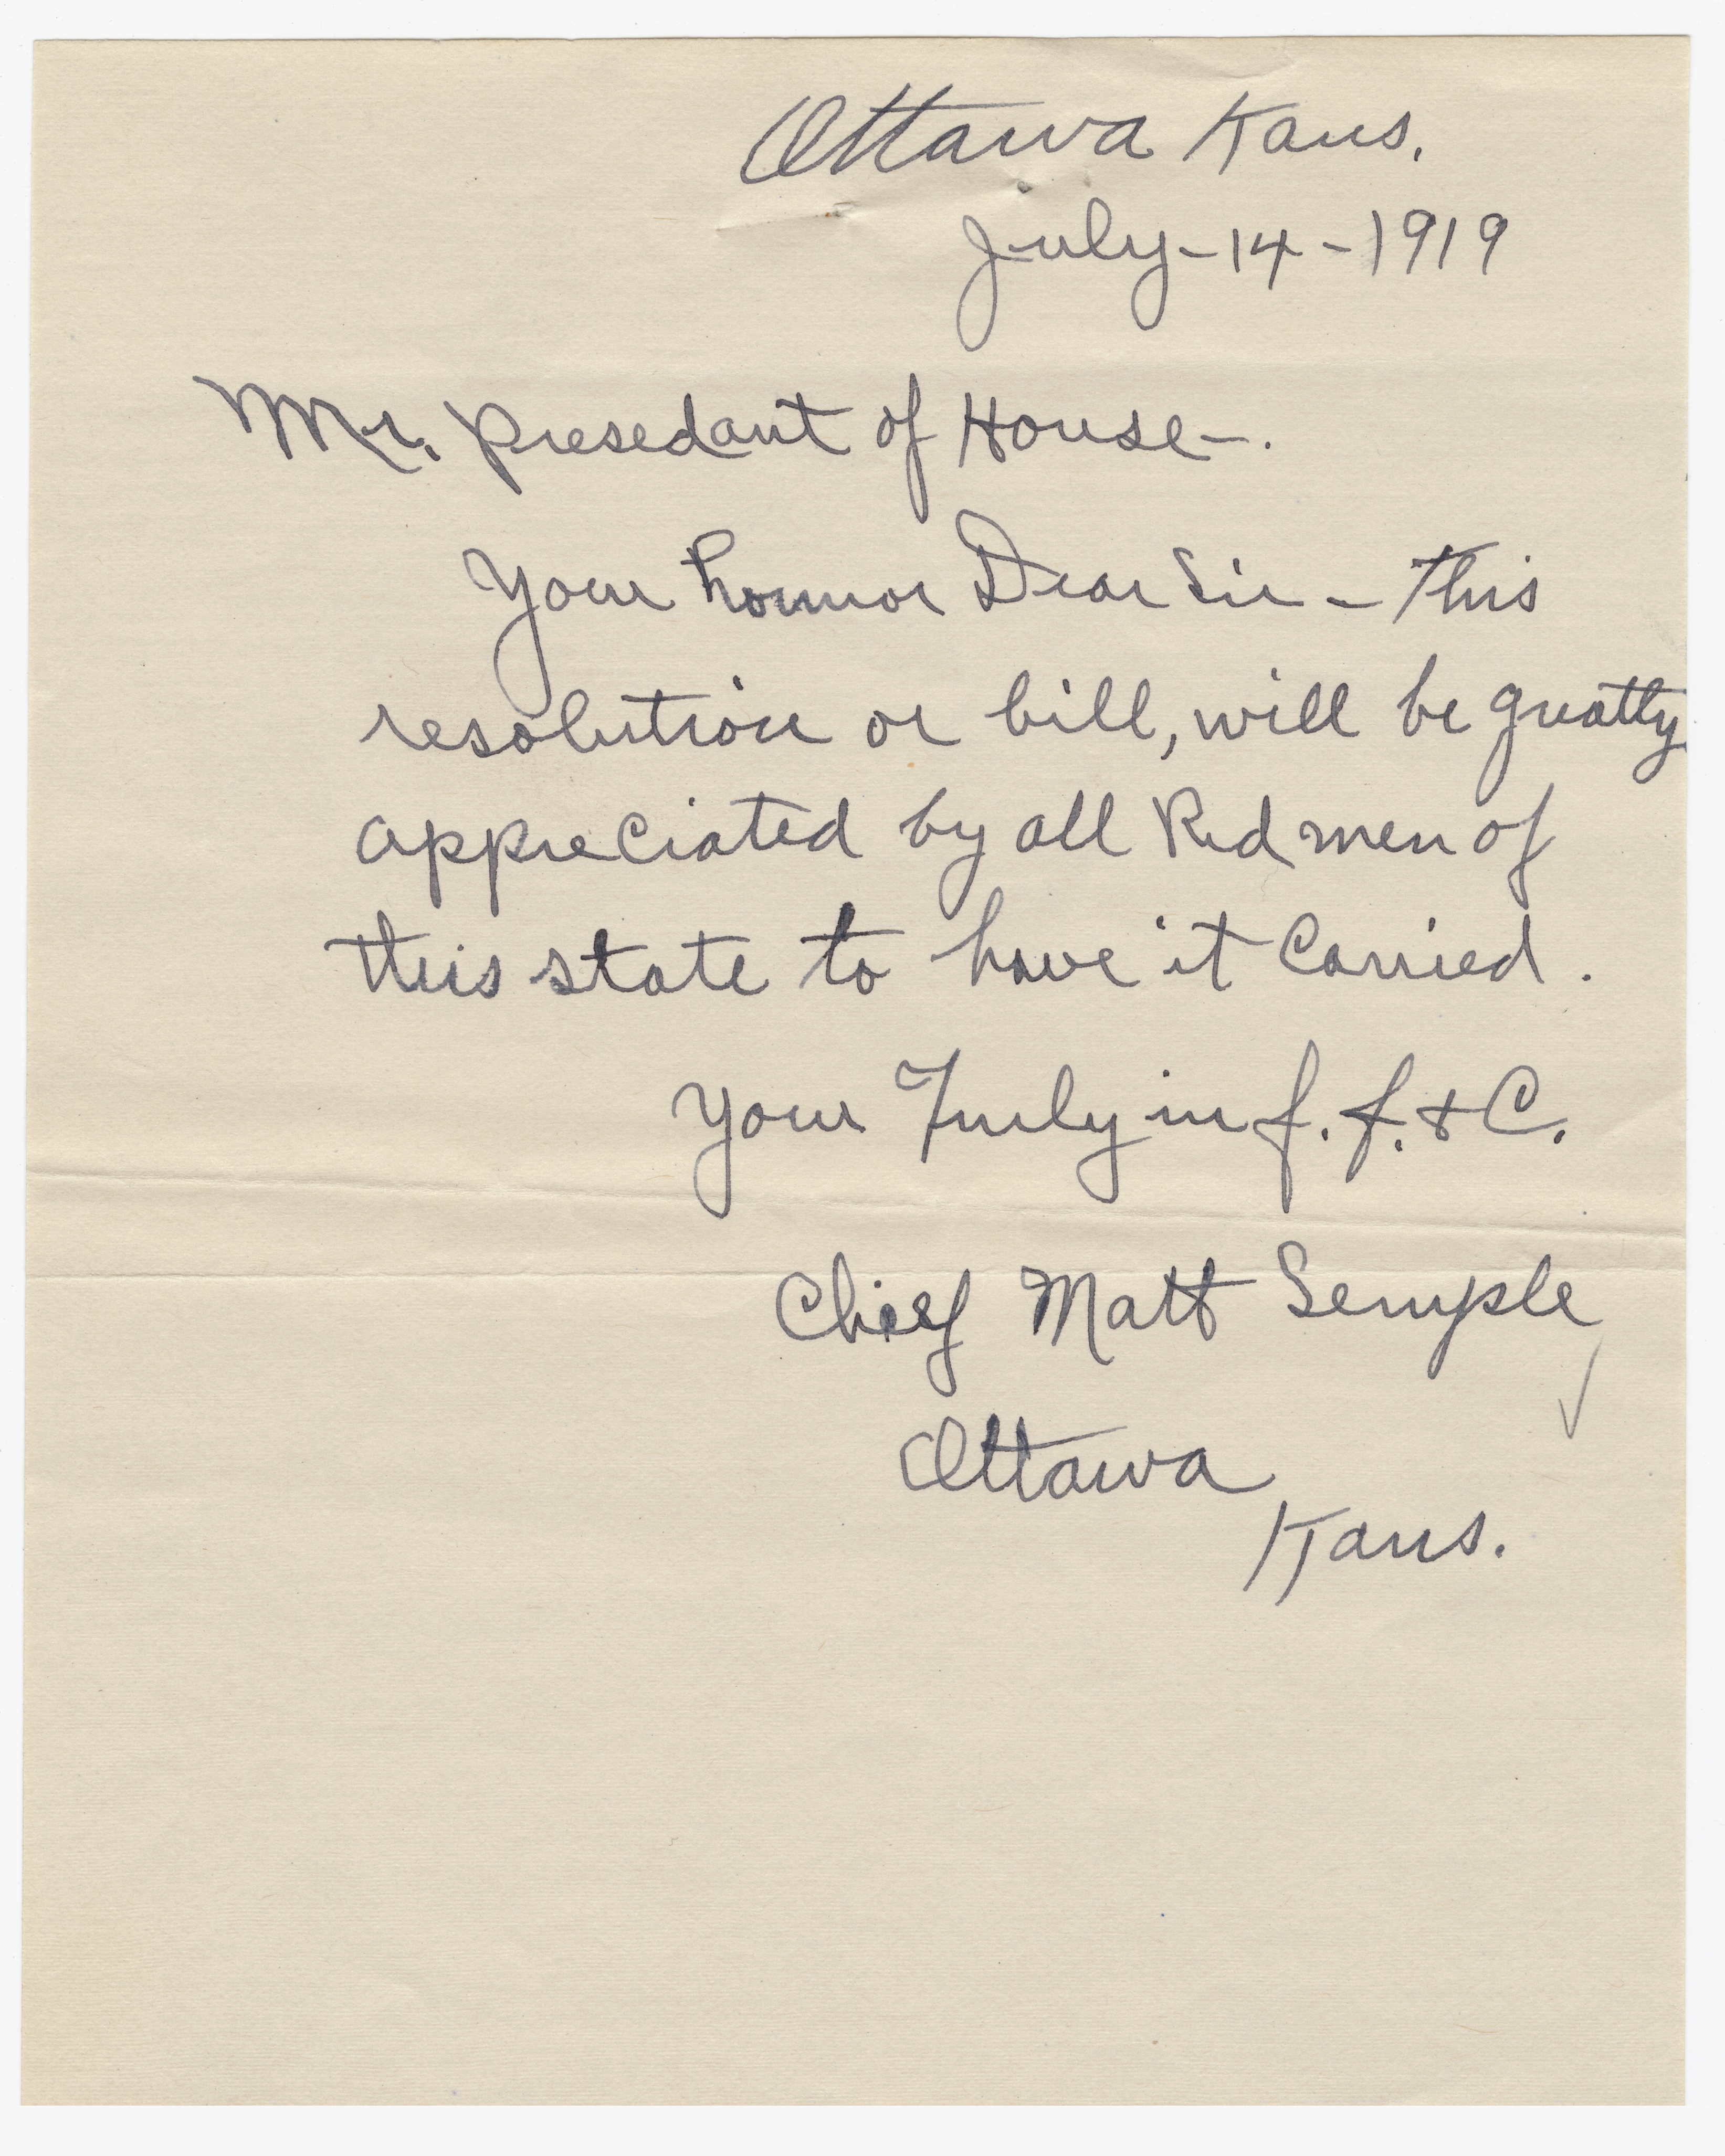 Ottawa Kans.
July-14-1919
Mr. presedant of House-.
Your honnor Dear Sir - This
resolution or bill, will be greatly
appreciated by all Red men of
this state to have it Carried.
Your Truly in f. f. & C.
Chief Matt Semple
Ottawa
Kans.